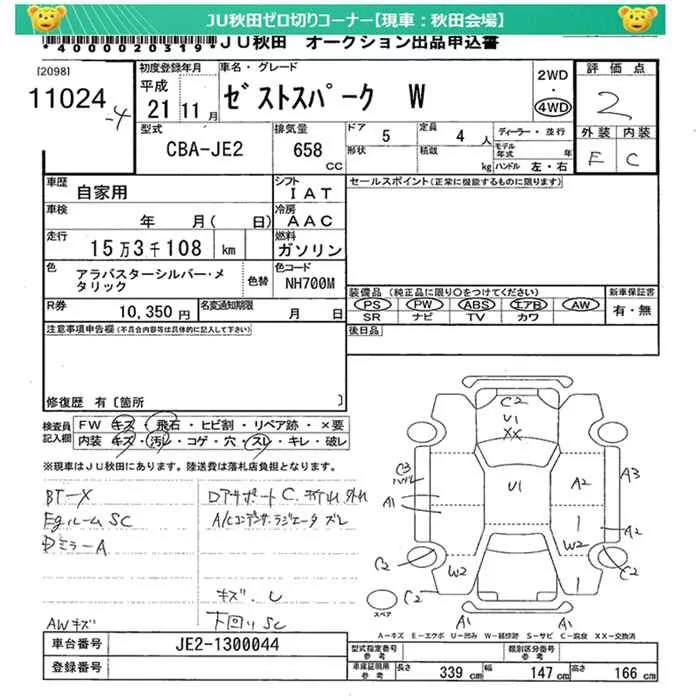 JU秋田ゼロ切りコーナー【現車:秋田会場】
*40000020319* JU秋田 オークション出品申込書
[2098]
11024
-4
初度登録年月
平成
21年11月
車名・グレード
ゼストスパーク W
2WD
4WD
評価点
2
型式
CBA-JE2
排気量
658
CC
ドア
5
定員
4人
形状
積載
kg
ディーラー・並行
モデル年式 年
ハンドル 左・右
外装 内装
E C
車歴
自家用
シフト
IAT
セールスポイント(正常に機能するものに限ります)
車検
年 月( 日)
冷房
AAC
走行
15万3千108 km
燃料
ガソリン
色
アラバスターシルバー・メタリック
色替
色コード
NH700M
装備品 (純正品に限り○をつけてください)
新車保証書
PS PW ABS エアB AW
SR ナビ TV カワ
有・無
R券
10,350円
名変通知期限
月 日
後日品
注意事項申告欄(不具合内容等は具体的に記入して下さい)
修復歴 有〔箇所 〕
検査員記入欄
FW キズ・飛石・ヒビ割・リペア跡・×要
内装 キズ・汚レ・コゲ・穴・スレ・キレ・破レ
※現車はJU秋田にあります。陸送費は落札店負担となります。
BT-X
Egルーム SC
DミラーA
AWキズ
A/Cコンデンサ・ラジエータ ズレ
キズ・U
下回りSC
C2
U1
XX
U1
A2
A3
A1
A2
W2
W2
C2
C2
C2
A1
A1
スペア
A-キズ E-エクボ U-凹み W-補修跡 S-サビ C-腐食 XX-交換済
車台番号
JE2-1300044
登録番号
型式指定番号
参考
類別区分番号
参考
車庫証明用
参考
長さ 339 cm
幅 147 cm
高さ 166 cm